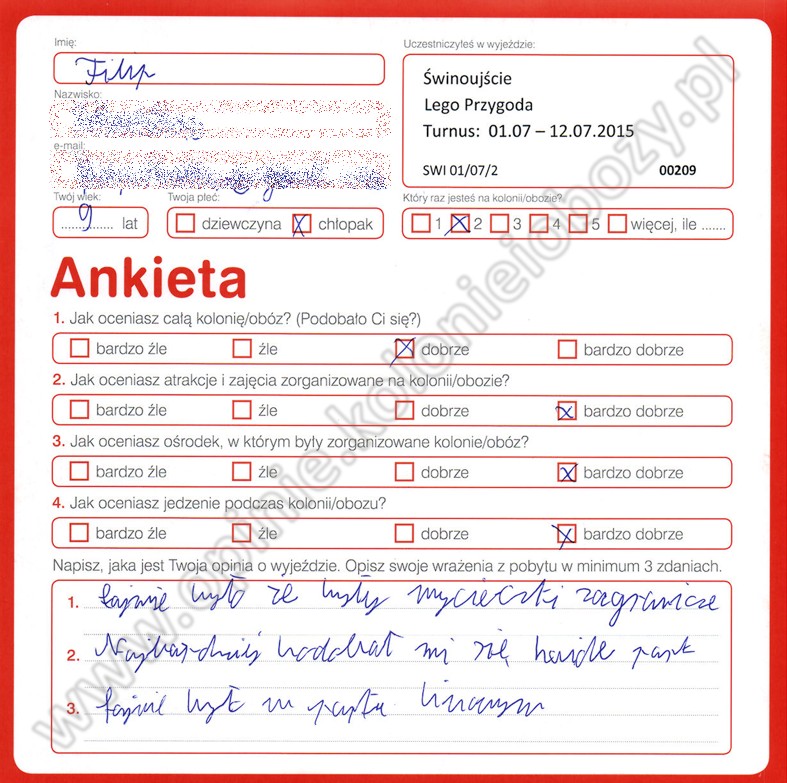 Imię:
Filip
Uczestniczyłeś w wyjeździe:
Świnoujście
Lego Przygoda
Turnus: 01.07 – 12.07.2015
SWI 01/07/2 00209
Nazwisko:
e-mail:
Twój wiek:
9 lat
Twoja płeć:
dziewczyna chłopak
Który raz jesteś na kolonii/obozie?
1 2 3 4 5 więcej, ile .......
Ankieta
1. Jak oceniasz całą kolonię/obóz? (Podobało Ci się?)
bardzo źle źle dobrze bardzo dobrze
2. Jak oceniasz atrakcje i zajęcia zorganizowane na kolonii/obozie?
bardzo źle źle dobrze bardzo dobrze
3. Jak oceniasz ośrodek, w którym były zorganizowane kolonie/obóz?
bardzo źle źle dobrze bardzo dobrze
4. Jak oceniasz jedzenie podczas kolonii/obozu?
bardzo źle źle dobrze bardzo dobrze
Napisz, jaka jest Twoja opinia o wyjeździe. Opisz swoje wrażenia z pobytu w minimum 3 zdaniach.
1. fajnie było że były wycieczki zagranicze
2. Najbardziej podobał mi się park
3. fajnie było w parku linowym
www.opinie.kolonieiobozy.pl